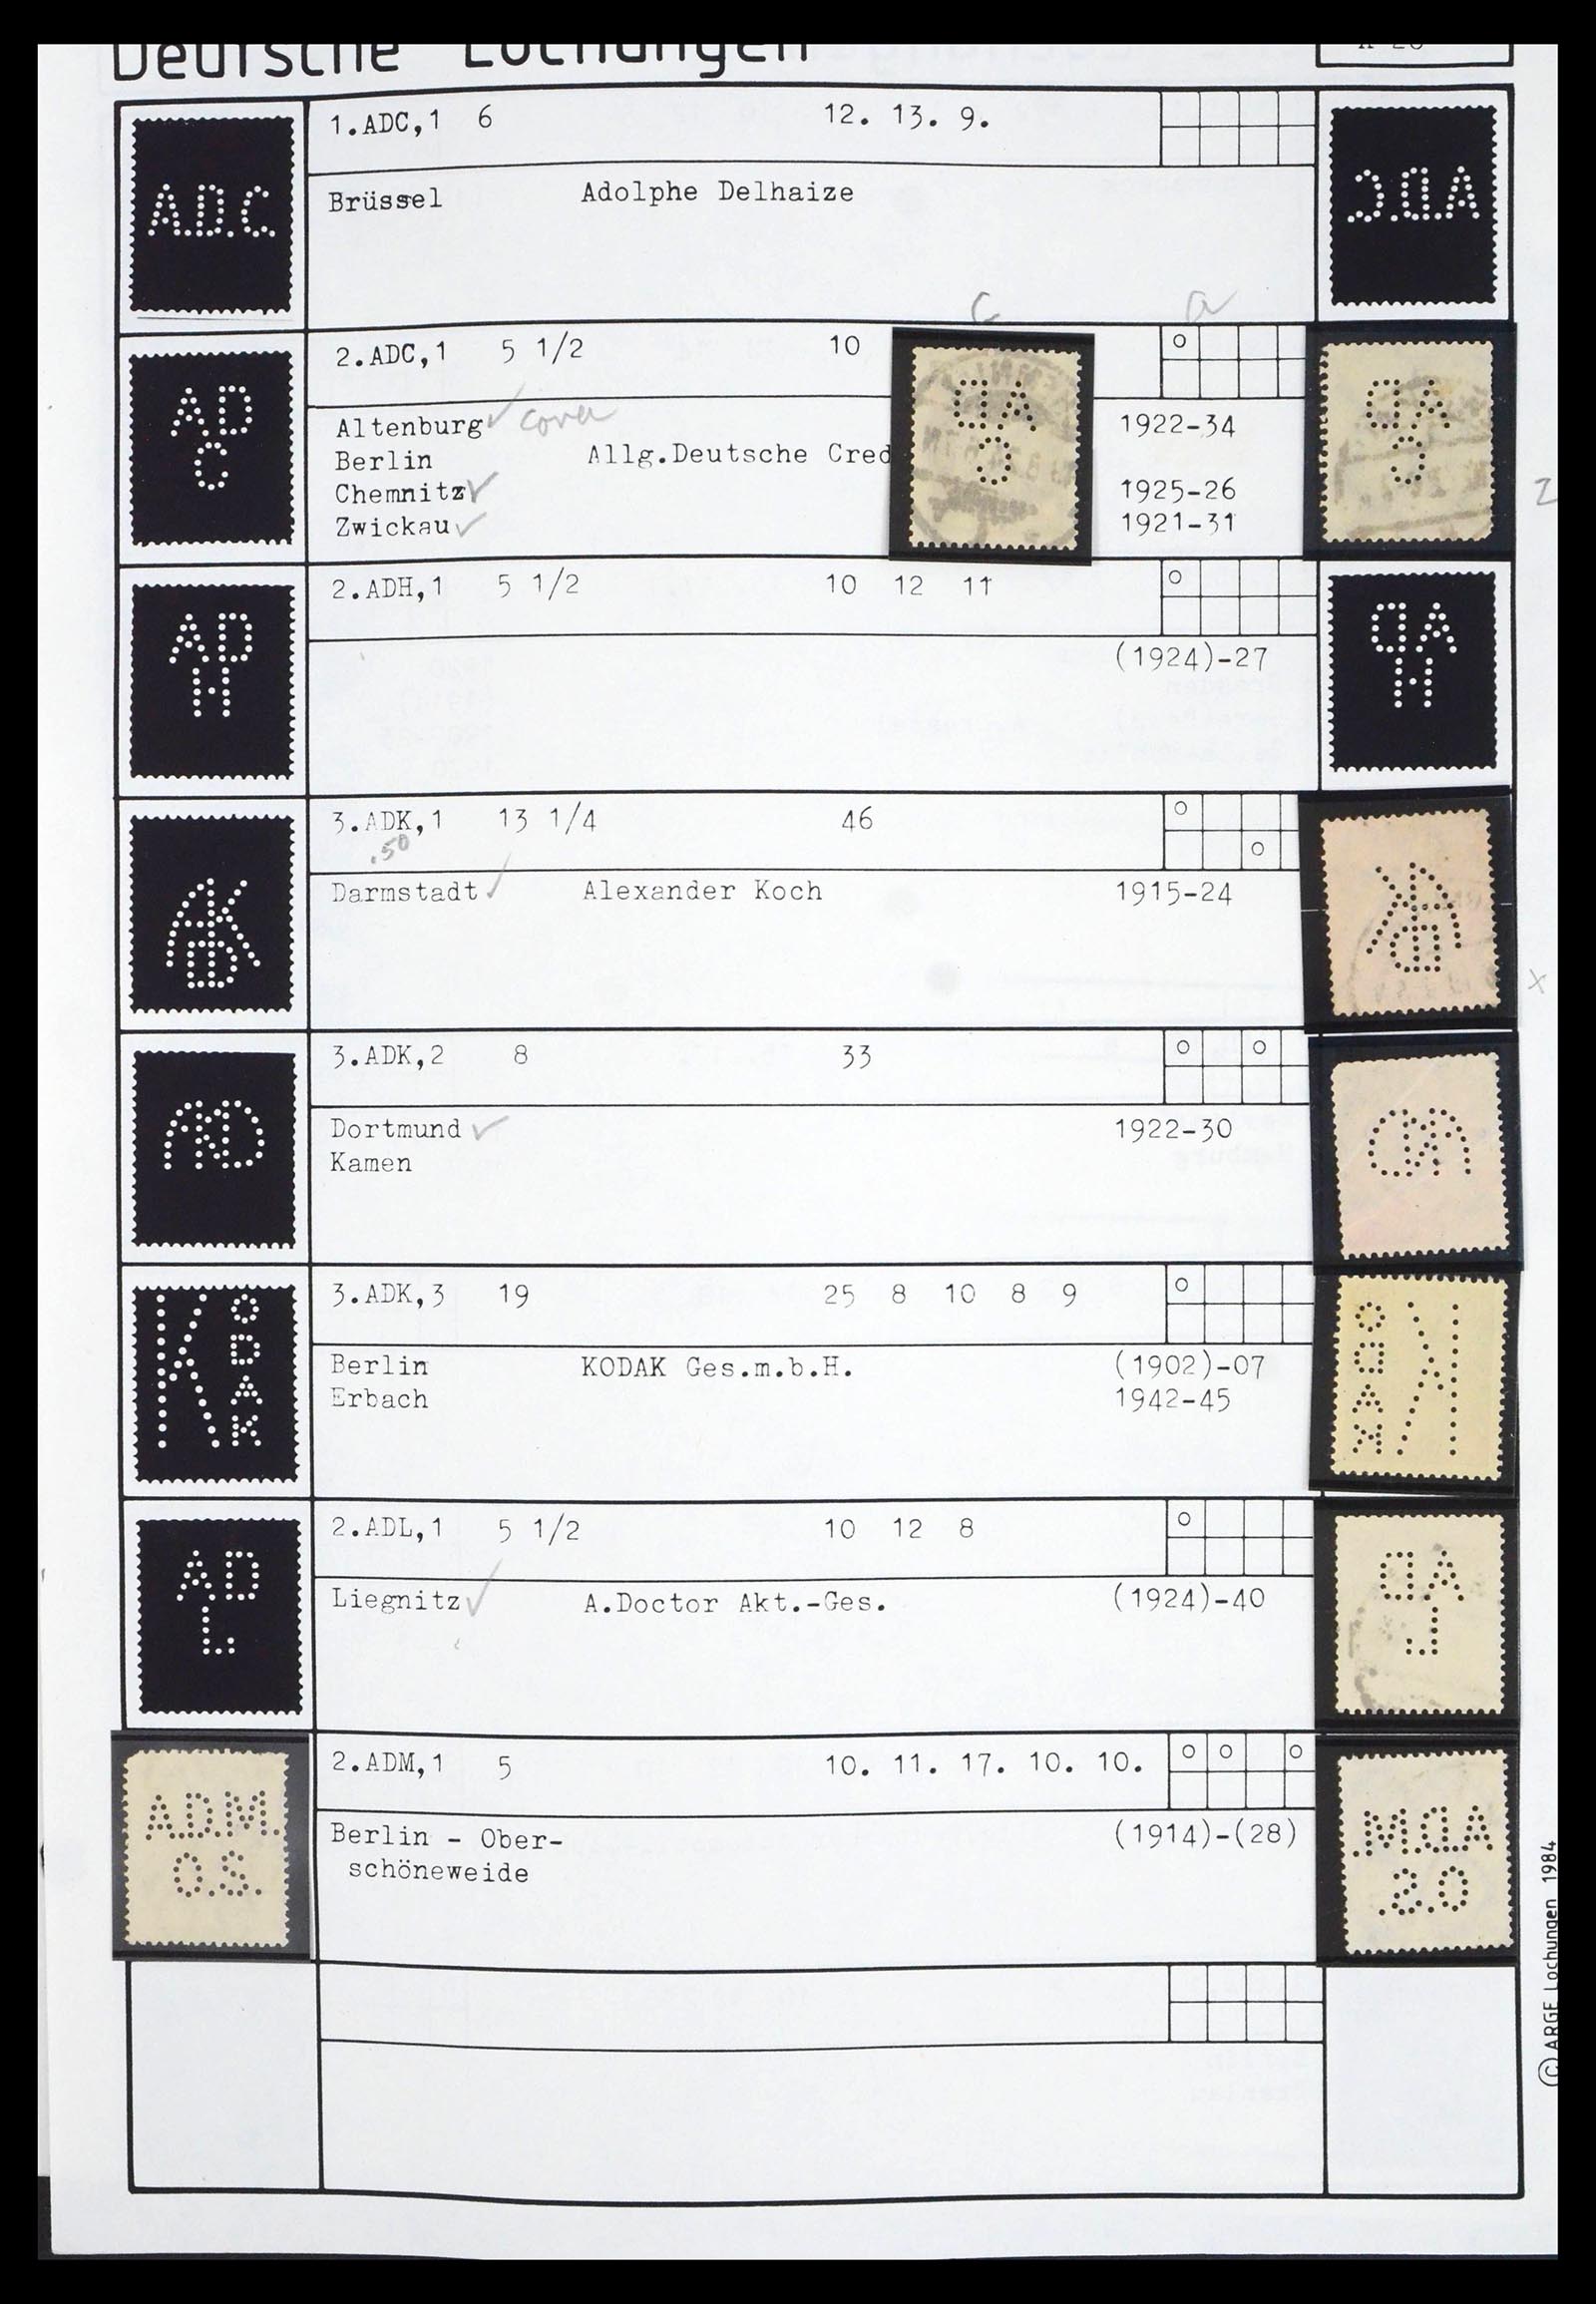 Deutsche Lochungen
A.D.C. 1.ADC,1 6 12. 13. 9.
Brüssel Adolphe Delhaize
c a
AD C 2.ADC,1 5 1/2 10
Altenburg cover 1922-34
Berlin Allg.Deutsche Cred
Chemnitz 1925-26
Zwickau 1921-31
Z
AD H 2.ADH,1 5 1/2 10 12 11
(1924)-27
3.ADK,1 13 1/4 46
.50
Darmstadt Alexander Koch 1915-24
x
3.ADK,2 8 33
Dortmund 1922-30
Kamen
KODAK 3.ADK,3 19 25 8 10 8 9
Berlin KODAK Ges.m.b.H. (1902)-07
Erbach 1942-45
AD L 2.ADL,1 5 1/2 10 12 8
Liegnitz A.Doctor Akt.-Ges. (1924)-40
A.D.M. O.S. 2.ADM,1 5 10. 11. 17. 10. 10.
Berlin - Ober- (1914)-(28)
schöneweide
© ARGE Lochungen 1984